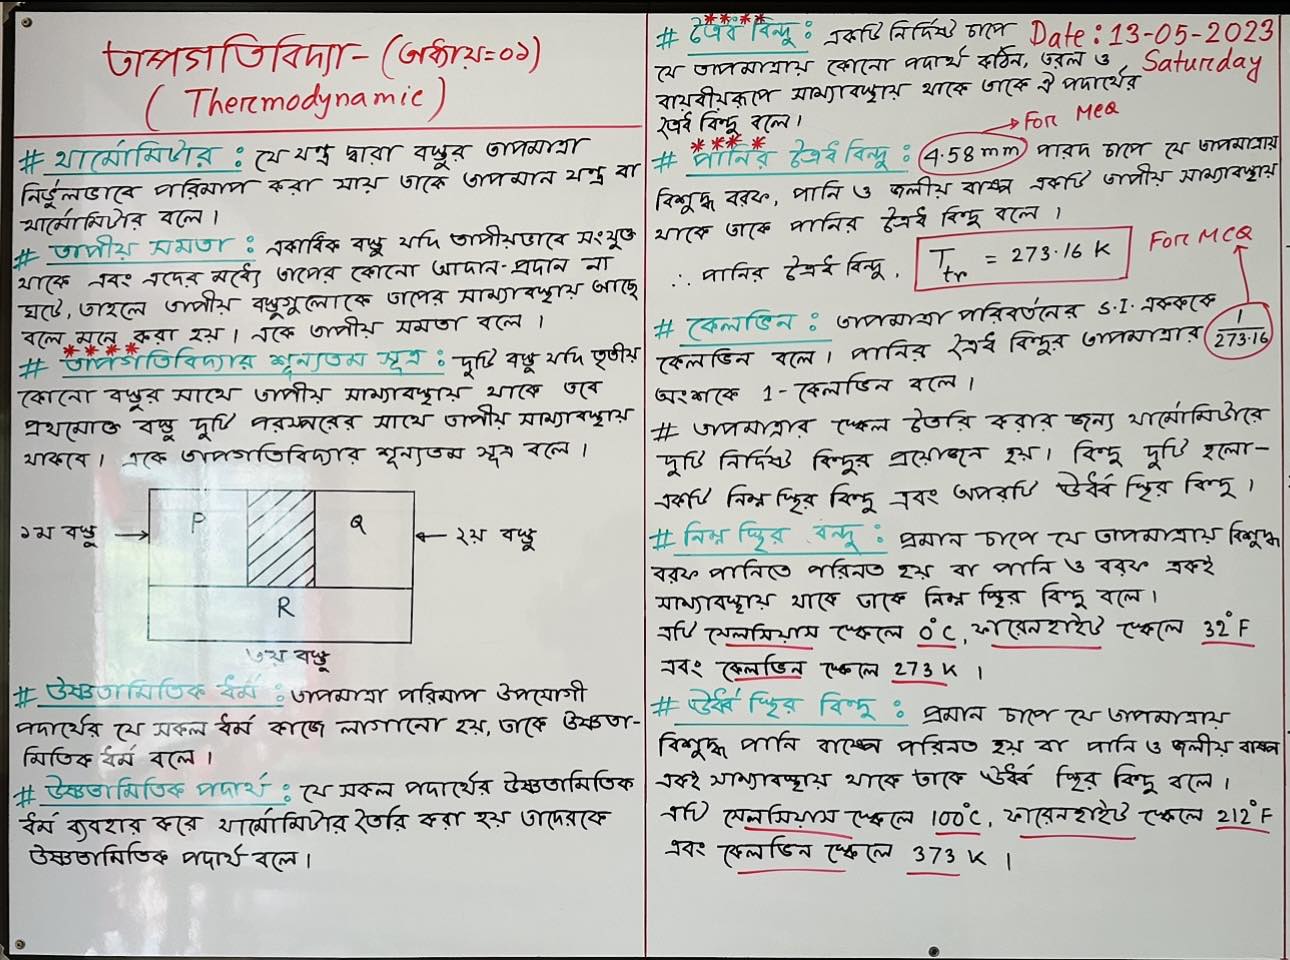 তাপগতিবিদ্যা - (অধ্যায়=০১)
( Thermodynamic )
# থার্মোমিটার : যে যন্ত্র দ্বারা বস্তুর তাপমাত্রা
নির্ভুলভাবে পরিমাপ করা যায় তাকে তাপমান যন্ত্র বা
থার্মোমিটার বলে।
# তাপীয় সমতা : একাধিক বস্তু যদি তাপীয়ভাবে সংযুক্ত
থাকে এবং এদের মধ্যে তাপের কোনো আদান-প্রদান না
ঘটে, তাহলে তাপীয় বস্তুগুলোকে তাপের সাম্যাবস্থায় আছে
বলে মনে করা হয়। একে তাপীয় সমতা বলে।
****
# তাপগতিবিদ্যার শূন্যতম সূত্র : দুটি বস্তু যদি তৃতীয়
কোনো বস্তুর সাথে তাপীয় সাম্যাবস্থায় থাকে তবে
প্রথমোক্ত বস্তু দুটি পরস্পরের সাথে তাপীয় সাম্যাবস্থায়
থাকবে। একে তাপগতিবিদ্যার শূন্যতম সূত্র বলে।
P
Q
১ম বস্তু →
← ২য় বস্তু
R
৩য় বস্তু
# উষ্ণতামিতিক ধর্ম : তাপমাত্রা পরিমাপ উপযোগী
পদার্থের যে সকল ধর্ম কাজে লাগানো হয়, তাকে উষ্ণতা-
মিতিক ধর্ম বলে।
# উষ্ণতামিতিক পদার্থ : যে সকল পদার্থের উষ্ণতামিতিক
ধর্ম ব্যবহার করে থার্মোমিটার তৈরি করা হয় তাদেরকে
উষ্ণতামিতিক পদার্থ বলে।
Date : 13-05-2023
Saturday
****
# ত্রৈধ বিন্দু : একটি নির্দিষ্ট চাপে
যে তাপমাত্রায় কোনো পদার্থ কঠিন, তরল ও
বায়বীয়রূপে সাম্যাবস্থায় থাকে তাকে ঐ পদার্থের
ত্রৈধ বিন্দু বলে।
→ For MCQ
****
# পানির ত্রৈধ বিন্দু : 4.58 mm পারদ চাপে যে তাপমাত্রায়
বিশুদ্ধ বরফ, পানি ও জলীয় বাষ্প একটি তাপীয় সাম্যাবস্থায়
থাকে তাকে পানির ত্রৈধ বিন্দু বলে।
∴ পানির ত্রৈধ বিন্দু, Ttr = 273.16 K
For MCQ
# কেলভিন : তাপমাত্রা পরিবর্তনের S.I. একককে
কেলভিন বলে। পানির ত্রৈধ বিন্দুর তাপমাত্রার 1/273.16
অংশকে 1 - কেলভিন বলে।
# তাপমাত্রার স্কেল তৈরি করার জন্য থার্মোমিটারে
দুটি নির্দিষ্ট বিন্দুর প্রয়োজন হয়। বিন্দু দুটি হলো-
একটি নিম্ন স্থির বিন্দু এবং অপরটি ঊর্ধ্ব স্থির বিন্দু।
# নিম্ন স্থির বন্দু : প্রমান চাপে যে তাপমাত্রায় বিশুদ্ধ
বরফ পানিতে পরিনত হয় বা পানি ও বরফ একই
সাম্যাবস্থায় থাকে তাকে নিম্ন স্থির বিন্দু বলে।
এটি সেলসিয়াস স্কেলে 0°C, ফারেনহাইট স্কেলে 32°F
এবং কেলভিন স্কেলে 273 K ।
# ঊর্ধ্ব স্থির বিন্দু : প্রমান চাপে যে তাপমাত্রায়
বিশুদ্ধ পানি বাষ্পে পরিনত হয় বা পানি ও জলীয় বাষ্প
একই সাম্যাবস্থায় থাকে তাকে ঊর্ধ্ব স্থির বিন্দু বলে।
এটি সেলসিয়াস স্কেলে 100°C, ফারেনহাইট স্কেলে 212°F
এবং কেলভিন স্কেলে 373 K ।